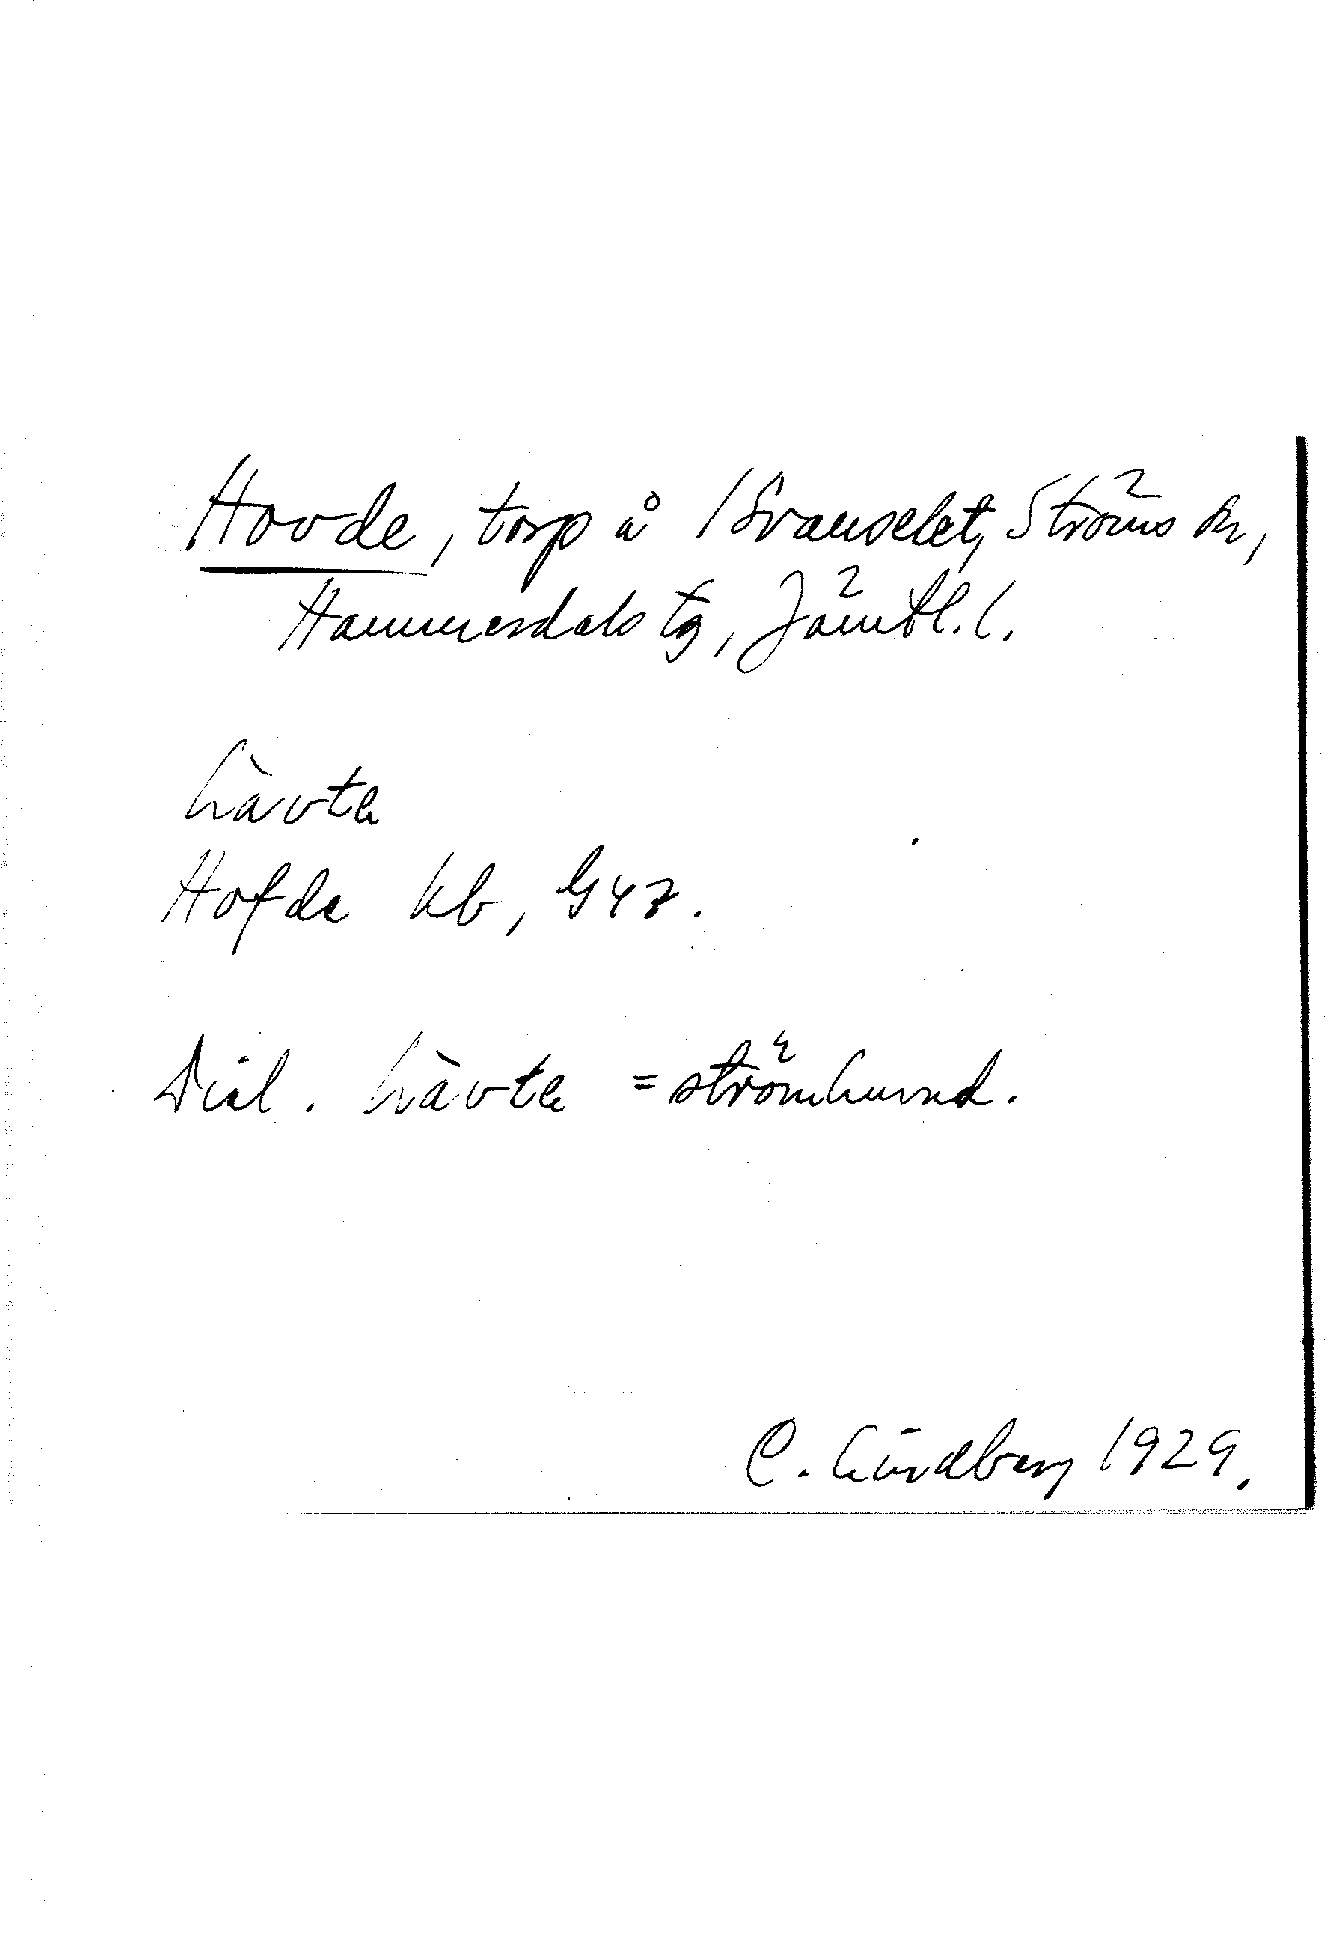 Hovde, torp å 1 Svanselet, Ströms sn,
Hammerdals tg, Jämtl. l.
hàvtə
Hofde kb, G4z.
Dial. hàvtə = strömhuvud.
C. Lindberg 1929.